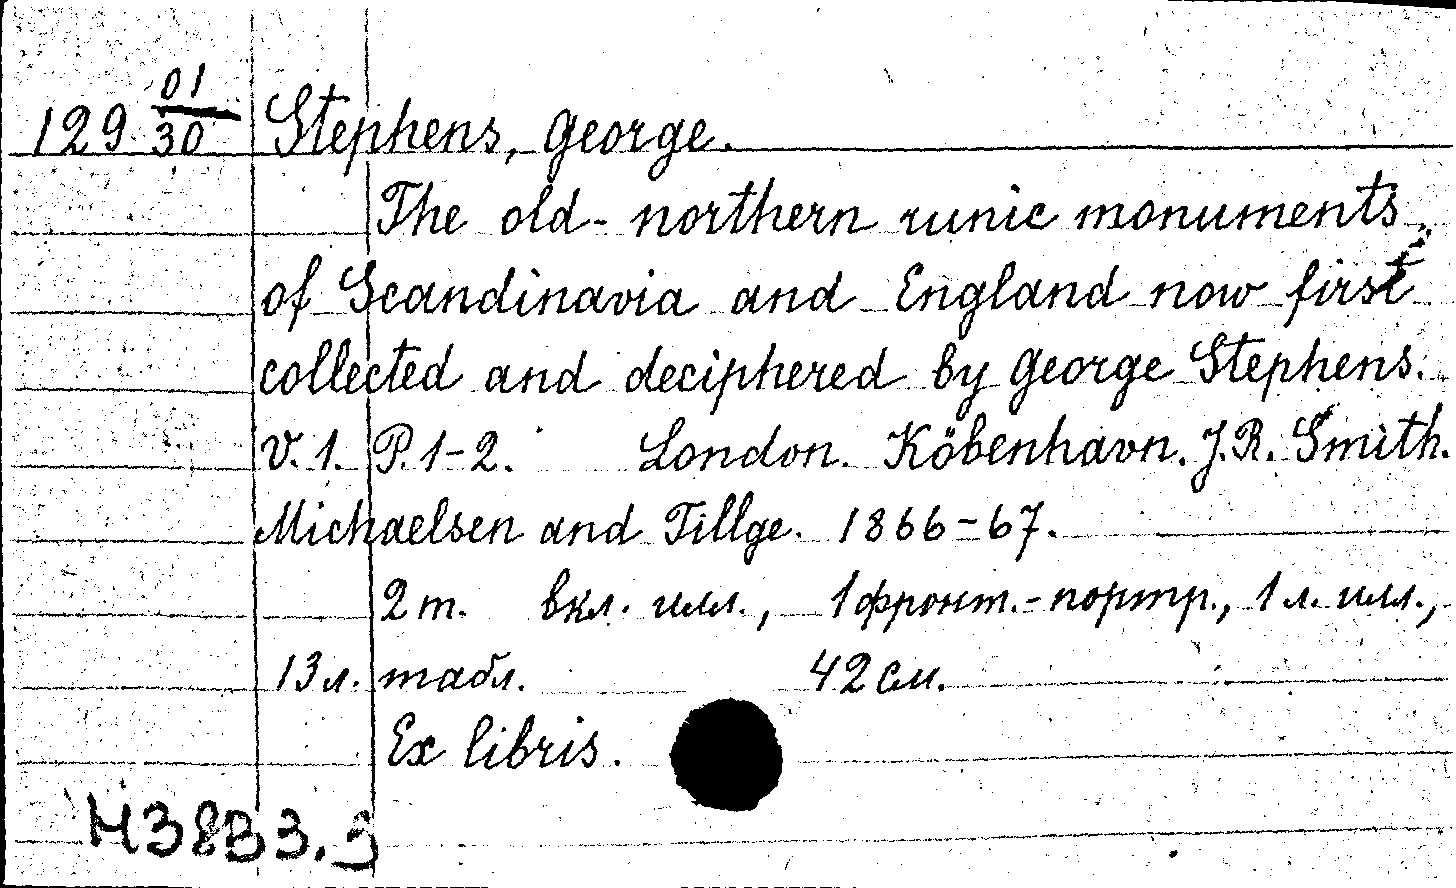 129 01/30 Stephens, George.
The old-northern runic monuments
of Scandinavia and England now first
collected and deciphered by George Stephens.
V. 1. P. 1-2. London. Köbenhavn. J.R. Smith.
Michaelsen and Tillge. 1866-67.
2 т. вкл. илл., 1 фронт.-портр., 1 л. илл.,
13 л. табл. 42 см.
Ex libris.
И38В3.